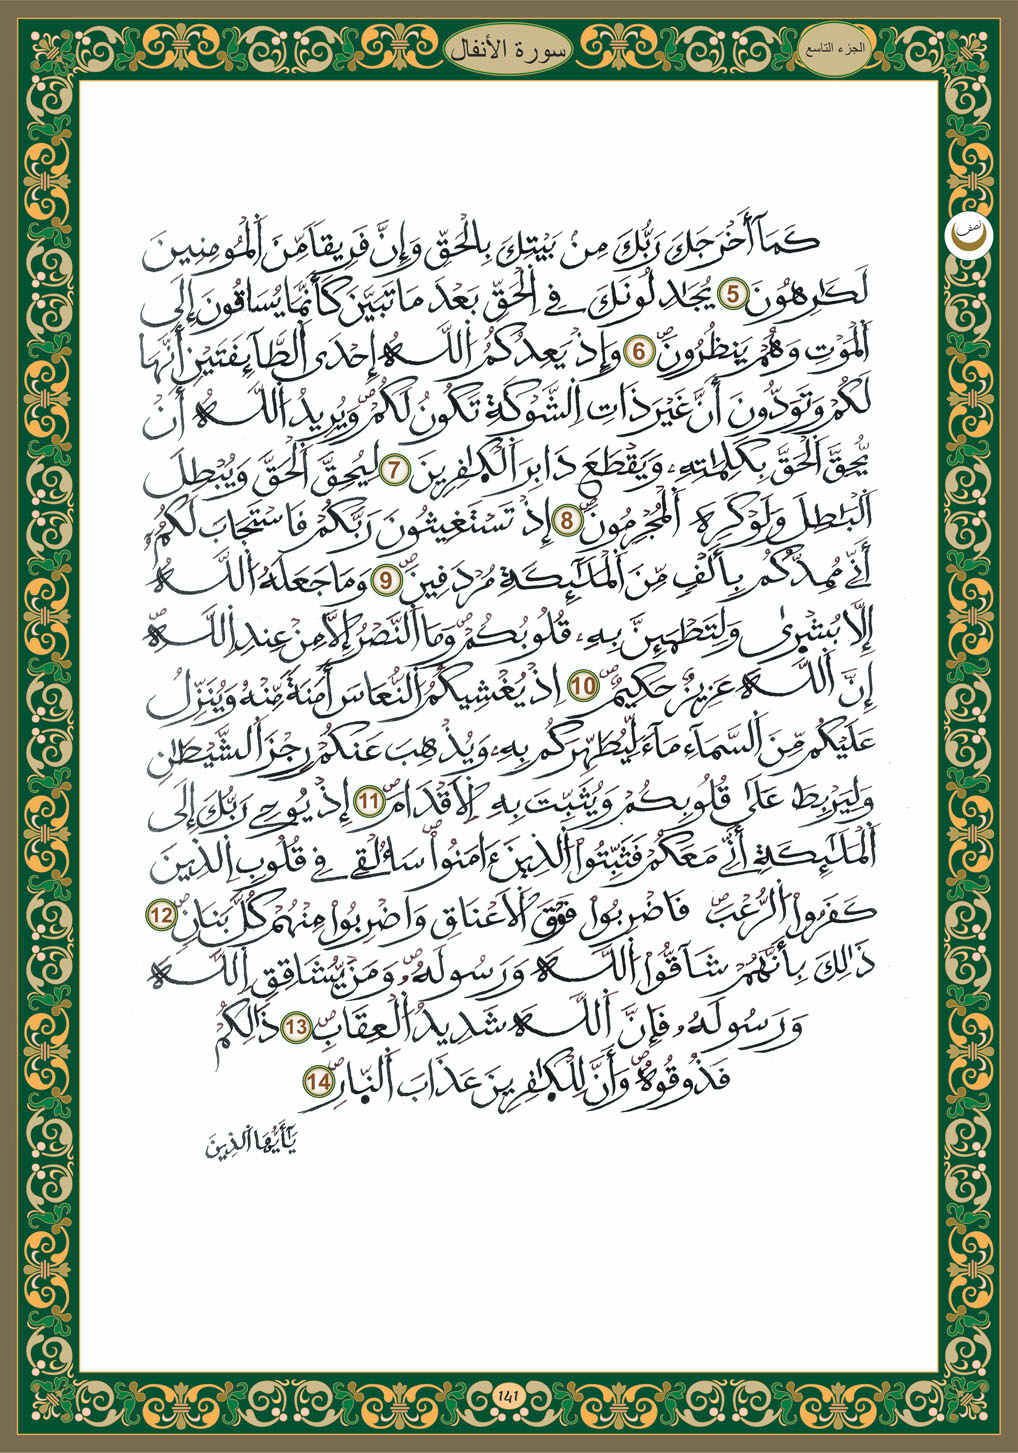 الجزء التاسع
سورة الأنفال
نصف
كَمَآ أَخْرَجَكَ رَبُّكَ مِنۢ بَيْتِكَ بِالْحَقِّ وَإِنَّ فَرِيقاٗ مِّنَ اَلْمُومِنِينَ
لَكَٰرِهُونَ 5 يُجَٰدِلُونَكَ فِے اِلْحَقِّ بَعْدَ مَا تَبَيَّنَ كَأَنَّمَا يُسَاقُونَ إِلَى
اَلْمَوْتِ وَهُمْ يَنظُرُونَۖ 6 وَإِذْ يَعِدُكُمُ اُللَّهُ إِحْدَى اَلطَّآئِفَتَيْنِ أَنَّهَا
لَكُمْ وَتَوَدُّونَ أَنَّ غَيْرَ ذَاتِ اِلشَّوْكَةِ تَكُونُ لَكُمْۖ وَيُرِيدُ اُللَّهُ أَنْ
يُّحِقَّ اَلْحَقَّ بِكَلِمَٰتِهِۦ وَيَقْطَعَ دَابِرَ اَلْكَٰفِرِينَ 7 لِيُحِقَّ اَلْحَقَّ وَيُبْطِلَ
اَلْبَٰطِلَ وَلَوْ كَرِهَ اَلْمُجْرِمُونَۖ 8 إِذْ تَسْتَغِيثُونَ رَبَّكُمْ فَاسْتَجَابَ لَكُمُۥٓ
أَنِّے مُمِدُّكُم بِأَلْفٖ مِّنَ اَلْمَلَٰٓئِكَةِ مُرْدَفِينَۖ 9 وَمَا جَعَلَهُ اُللَّهُ
إِلَّا بُشْر۪ىٰ وَلِتَطْمَئِنَّ بِهِۦ قُلُوبُكُمْۖ وَمَا اَلنَّصْرُ إِلَّا مِنْ عِندِ اِللَّهِۖ
إِنَّ اَللَّهَ عَزِيزٌ حَكِيمٌۖ 10 اِذْ يُغْشِيكُمُ اُلنُّعَاسَ أَمَنَةٗ مِّنْهُ وَيُنَزِّلُ
عَلَيْكُم مِّنَ اَلسَّمَآءِ مَآءٗ لِّيُطَهِّرَكُم بِهِۦ وَيُذْهِبَ عَنكُمْ رِجْزَ اَلشَّيْطَٰنِ
وَلِيَرْبِطَ عَلَىٰ قُلُوبِكُمْ وَيُثَبِّتَ بِهِ اِلَاقْدَامَۖ 11 إِذْ يُوحِے رَبُّكَ إِلَى
اَلْمَلَٰٓئِكَةِ أَنِّے مَعَكُمْ فَثَبِّتُواْ اُلذِينَ ءَامَنُواْۖ سَأُلْقِے فِے قُلُوبِ اِلذِينَ
كَفَرُواْ اُلرُّعْبَۖ فَاضْرِبُواْ فَوْقَ اَلَاعْنَاقِ وَاضْرِبُواْ مِنْهُمْ كُلَّ بَنَانٖۖ 12
ذَٰلِكَ بِأَنَّهُمْ شَآقُّواْ اُللَّهَ وَرَسُولَهُۥۖ وَمَنْ يُّشَاقِقِ اِللَّهَ
وَرَسُولَهُۥ فَإِنَّ اَللَّهَ شَدِيدُ اُلْعِقَابِۖ 13 ذَٰلِكُمْ
فَذُوقُوهُۖ وَأَنَّ لِلْكَٰفِرِينَ عَذَابَ اَلنَّارِۖ 14
يَٰٓأَيُّهَا اَلذِينَ
141